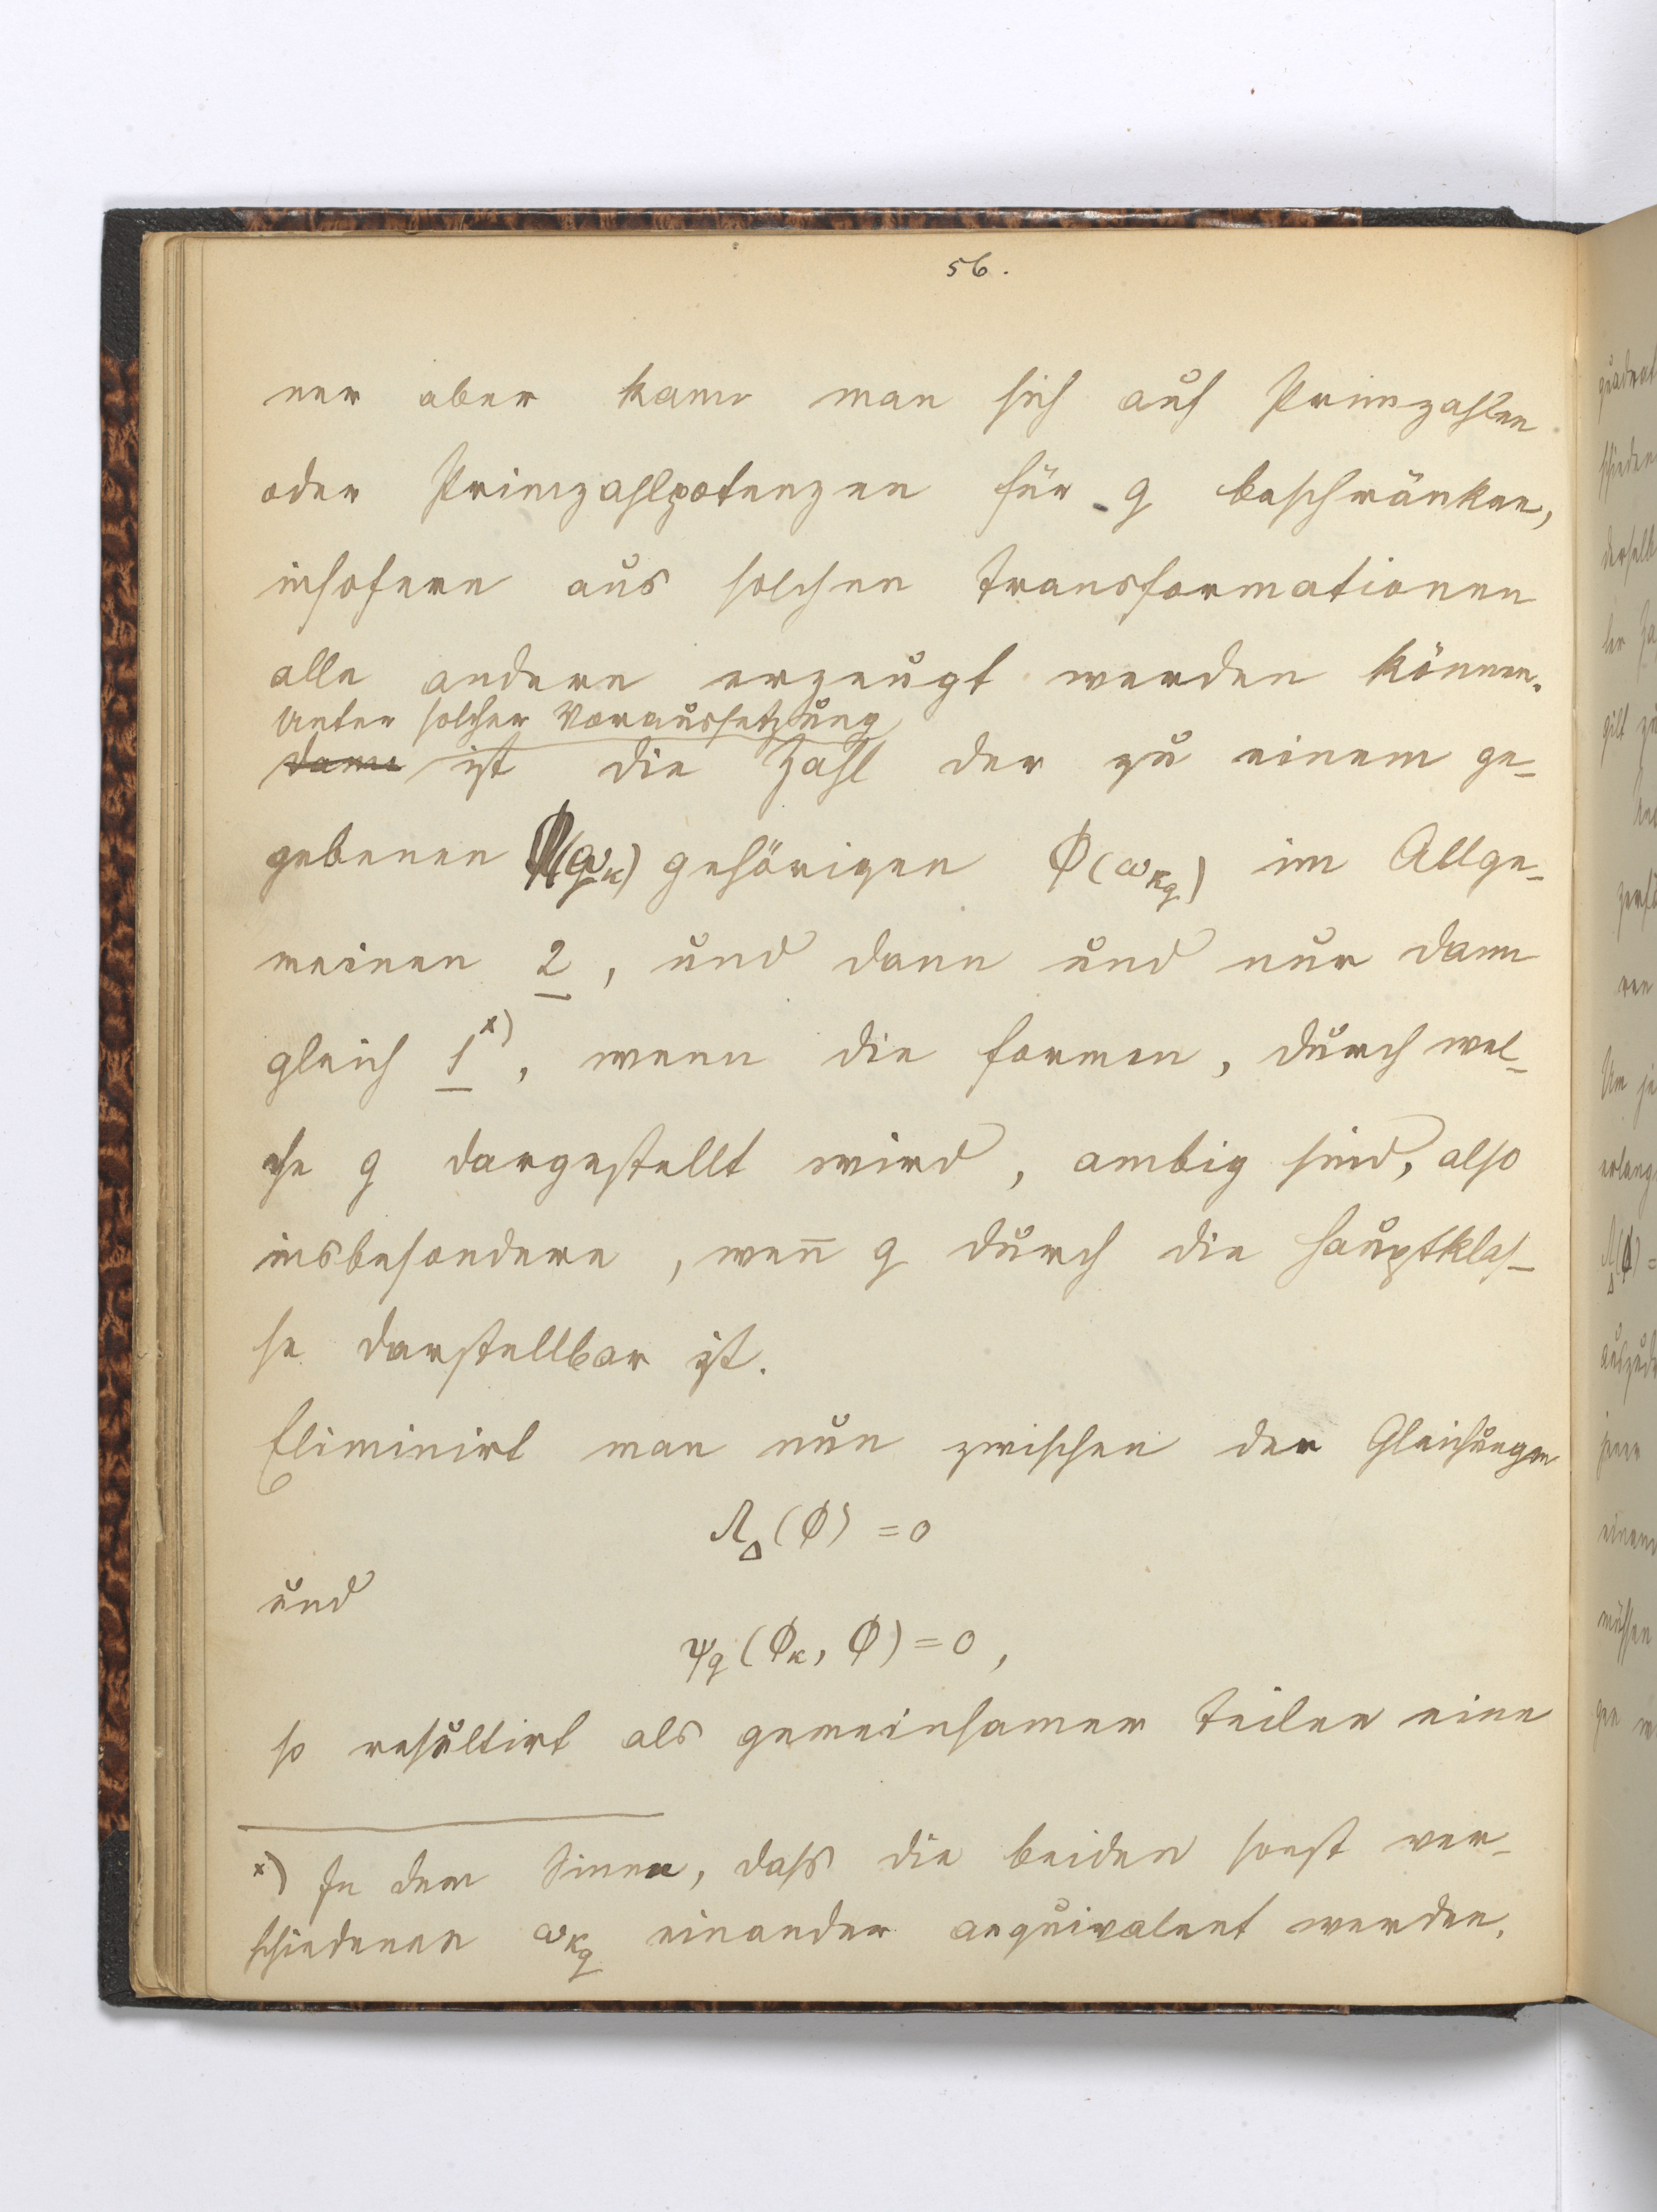 56.
ner aber kann man sich auf Primzahlen
oder Primzahlpotenzen für q beschränken,
insofern aus solchen Transformationen
alle andern erzeugt werden können.
Unter solcher Voraussetzung
dann ist die Zahl der zu einem ge-
gebenen Φ(ωκ) gehörigen Φ(ωκq) im Allge-
meinen 2, und dann und nur dann
gleich 1 x), wenn die Formen, durch wel-
che q dargestellt wird, ambig sind, also
insbesondere, wen̄ q durch die Hauptklas-
se darstellbar ist.
Eliminirt man nun zwischen den Gleichungen
ΛΔ(Φ) = 0
und
ψq(Φκ, Φ) = 0,
so resultirt als gemeinsamer Teiler eine
x) In dem Sinne, dass die beiden sonst ver-
schiedenen ωκq einander aequivalent werden.